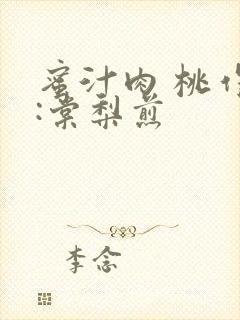 蜜汁肉桃作
:棠梨煎
李念